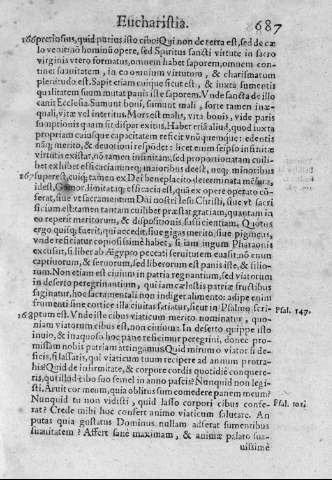 Eucharistia. 687
166 pretiosius, quid purius isto cibo? Qui non de terra est, sed de cæ
lo venit: nō hominū opere, sed Spiritus sancti virtute in sacro
virginis vtero formatus, omnem habet saporem, omnem con-
tinet suauitatem, in eo omnium virtutum, & charismatum
plenitudo est. Sapit etiam cuique sicut est, & iuxta sumentis
qualitatem suum mutat panis iste saporem. Vnde sancta de illo
canit Ecclesia. Sumunt boni, sumunt mali, sorte tamen inæ-
quali, vitæ vel interitus. Mors est malis, vita bonis, vide paris
sumptionis quam sit dispar exitus. Habet etiā aliud, quod iuxta
propriam cuiusque capacitatem efficit vnūquemque: edentis
nāq; merito, & deuotioni respōdet: licet enim seipso infinitæ
virtutis existat, nō tamen infinitam, sed proportionatam cuili-
bet exhibet efficaciam: neq; maioribus deest, neq; minoribus
167 superest, cuiq; tamen ex Dei beneplacito determinata mēsura,
idest, Gomor, limitataq; efficacia est, quā ex opere operato cō-
ferat, siue vt sacramentum Dñi nostri Iesu Christi, siue vt sacri
ficium est: tamen tantum cuilibet præstat gratiam, quantam in
eo reperit meritorum, & dispositionis sufficientiam. Quotus
ergo quisq; fuerit, qui accedit, siue gigas merito, siue pigmeus,
vnde reficiatur copiosissimè habet, si iam iugum Pharaonis
excussit, si liber ab Ægypto peccati seruitutem euasit: nō enim
captiuorum, & seruorum, sed liberorum est panis iste, & filio-
rum. Non etiam est ciuium in patria regnantium, sed viatorum
in deserto peregrinantium, qui iam cælestis patriæ fructibus
saginatur, hoc sacramentali non indiget alimento: adipe enim
frumenti sine cortice illa ciuitas satiatur, sicut in Psalmo scri- Psal. 147.
168 ptum est. Vnde iste cibus viaticum merito nominatur, quo-
niam viatorum cibus est, non ciuium. In deserto quippe isto
inuio, & inaquoso hoc pane reficimur peregrini, donec pro-
missam nobis patriam attingamus. Quid mirum o viator si de-
ficis, si lassatis, qui viaticum tuum recipere ad annum protra-
his? Quid de infirmitate, & corpore cordis quotidie conquere-
ris, qui illo tā cibo suo semel in anno pascis? Nunquid non legi-
sti. Aruit cor meum, quia oblitus sum comedere panem meum? Psal. 101.
Nunquid tu non vidisti, quid lasso corpori cibus confe-
rat? Crede mihi hoc confert animo viaticum salutare. An
putas quia gustatus Dominus nullam afferat sumentibus
suauitatem? Affert sanè maximam, & animæ palato sua-
uissimè